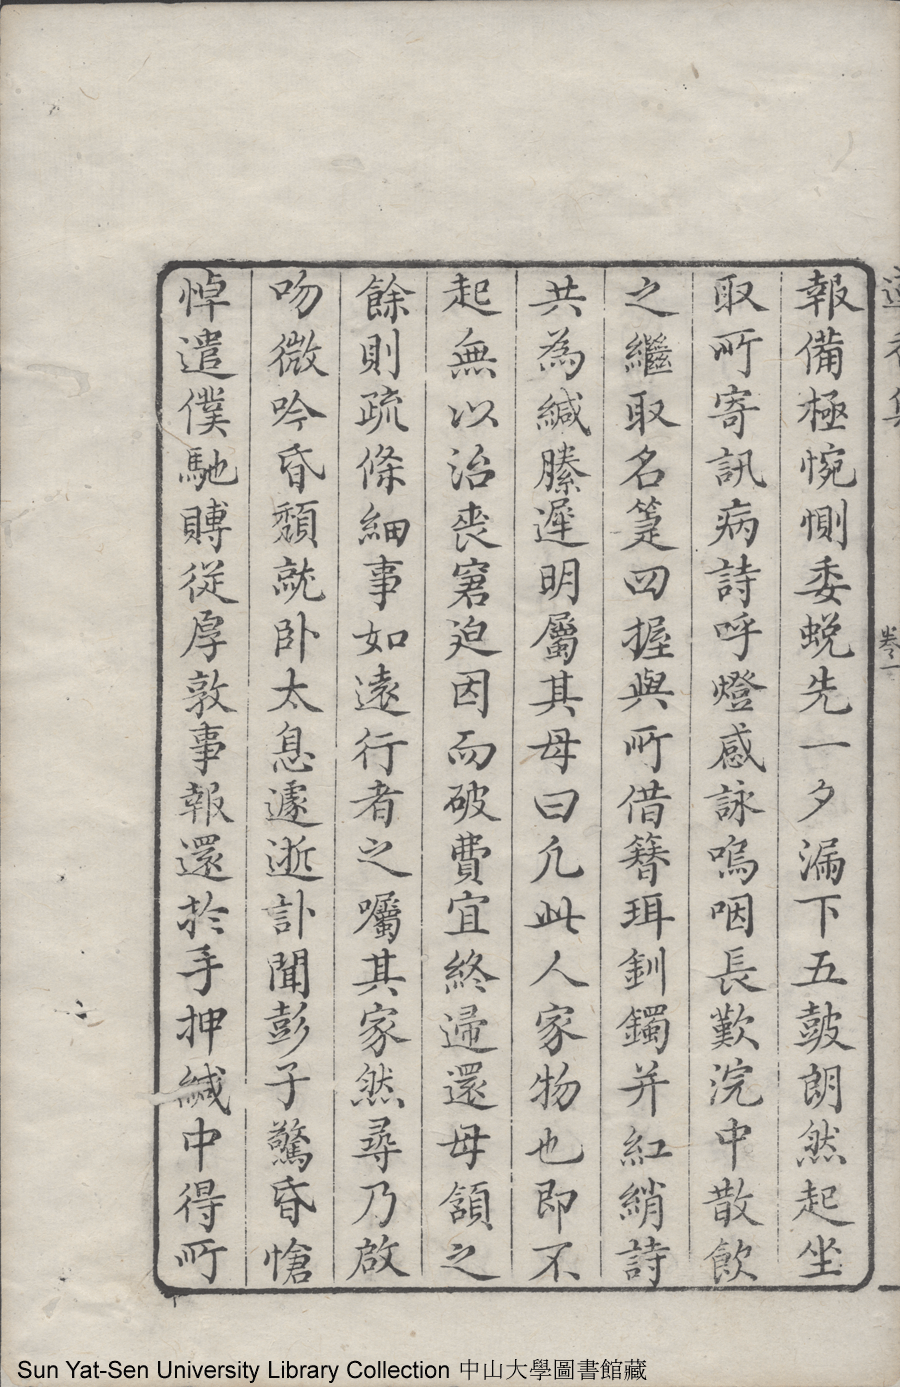 報備極惋惻委蛻先一夕漏下五皷朗然起坐
取所寄訊病詩呼燈感詠嗚咽長歎浣中散飲
之繼取名箑四握與所借簪珥釧鐲并紅綃詩
共為緘縢遲明屬其母曰凢此人家物也即不
起無以治喪窘迫因而破費宜終歸還母頷之
餘則疏條細事如遠行者之囑其家然尋乃啟
吻微吟昏頹就卧太息遽逝訃聞彭子驚昏愴
悼遣僕馳賻從厚敦事報還扵手押緘中得所
卷一
Sun Yat-Sen University Library Collection 中山大學圖書館藏